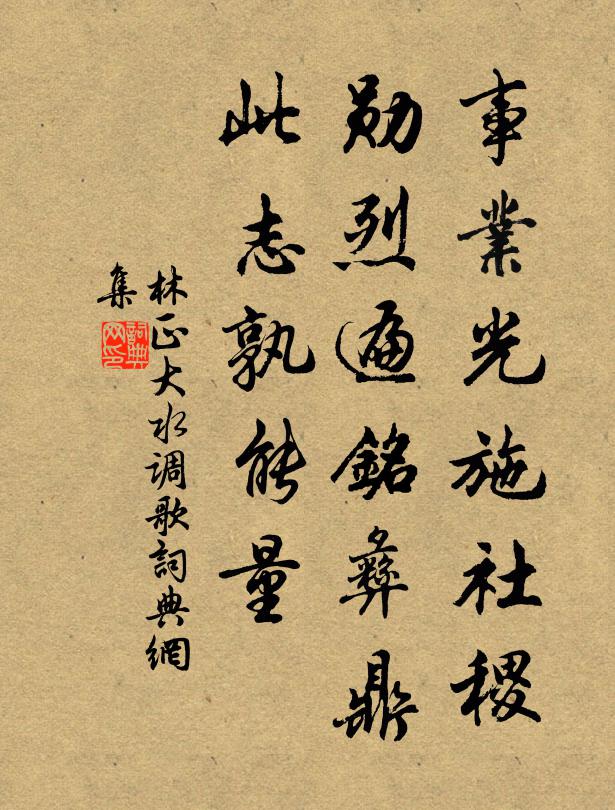 事業光施社稷
勛烈遍銘彝鼎
此志孰能量
林正大水調歌詞典網
集
詞典網印